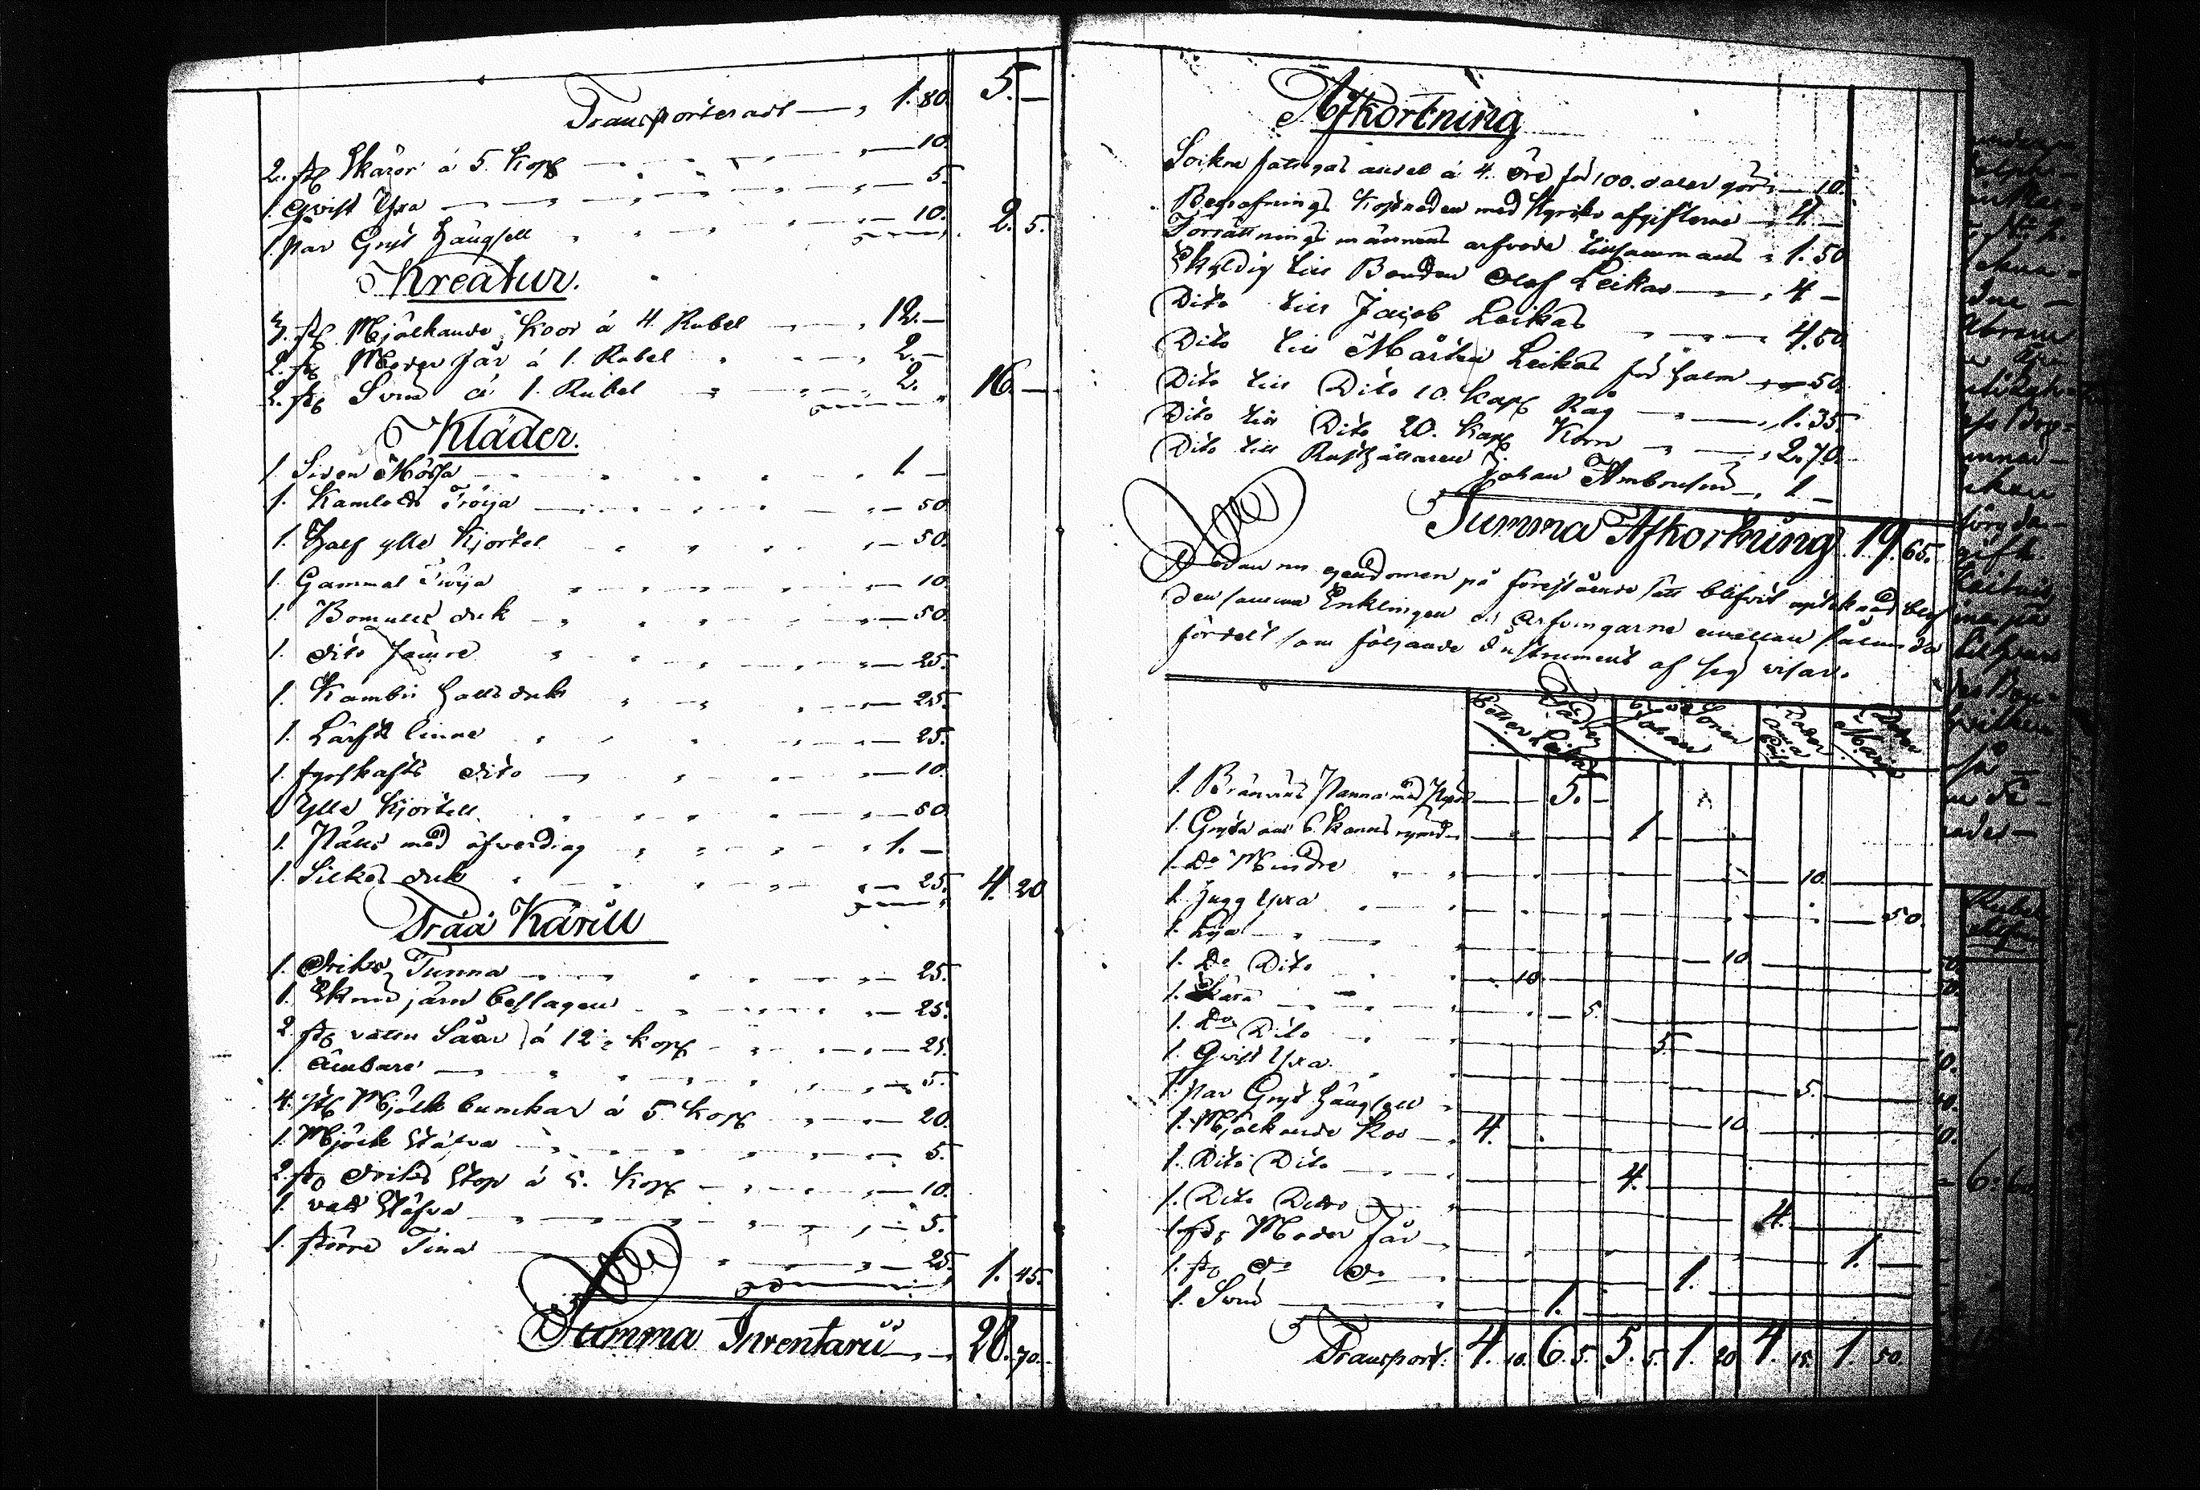 Transporteradt — „ 1. 80. 5. —
2. st Skäror á 5. Kop — 10.
1. Qvist Yxa — 5.
1. par Gryt Hängsell — 10. 2. 5.
Kreatur.
3. st Mjölkande Koor á 4. Rubel — 12. —
2. st Moder får á 1. Rubel — 2. —
2. st Svin á 1. Rubel — 2. 16. —
Kläder.
1. Siden Mössa — 1. —
1. Kamlots Tröija — 50
1. Half ylle Kjortel — 50.
1. Gammal Tröija — 10
1. Bomulls duk — 50.
1. dito sämre — 25.
1. Halls duk — 25.
1. Lärft linne — 25.
1. fyrskafts dito — 10.
1 Ylle Kjortell — 50
1. Päls med öfverdrag — 1. —
1. Silkes duk — 25. 4. 20
Trää Kärill
1. Driks Tunna — 25.
1. järn beslagen — 25.
2. st vatten Såår á 12½ kop — 25.
1. Ämbare — 5.
4. st Mjölk bunkar á 5 kop — 20.
1. Mjölk Stäfva — 5.
2. st Driks Stop á 5. Kop — 10.
1. vatt Stäfva — 5.
1. större Tina — 25. 1. 45.
Summa Inventarii — 28. 70.
Afkortning
Sokne fattigas andel á 4. öre för 100. daler gör — 10.
Begrafnings Kostnaden med Kyrko afgifterne — 4. —
Förrättnings männens arfvode tillsammans „ 1. 50
Skyldig till Bonden Olof Leikas — „ 4 —
Dito till Jacob Leikas — 4. 50
Dito till Mårten Leikas för halm — 50.
Dito till Dito 10. kap Råg — 1. 35.
Dito till Dito 20. kap Korn — „ 2. 70.
Dito till Rusthållaren Johan — „ 1. —
Summa Afkortning 19. 65.
Sedan nu egendomen på förestående sätt blifvit uptecknad blef
den samma Enklingen och Arfvingarne emellan sålunda
fördelt som följande Instrument af sig visar.
Fader Petter Leikas Sonen Johan
1. Bränvins Panna med — 5. —
1. Gryta om 6. Kanns rymd — 1 —
1. Do Mindre — 10.
1. Hugg Yxa — 50.
1. Lija — 10
1. Do Dito — 10.
1. Skära — 5.
1. Do Dito — 5.
1. Qvist Yxa — 5.
1. Par Gryt Hängsell — 10
1. Mjölkande Koo — 4.
1. Dito Dito — 4.
1. Dito Dito — 4.
1. st Moder Får — 1. —
1. st do do — 1.
1. Svin — 1.
Transport: 4. 10. 6. 5. 5. 5. 1. 20 4. 15. 1. 50.